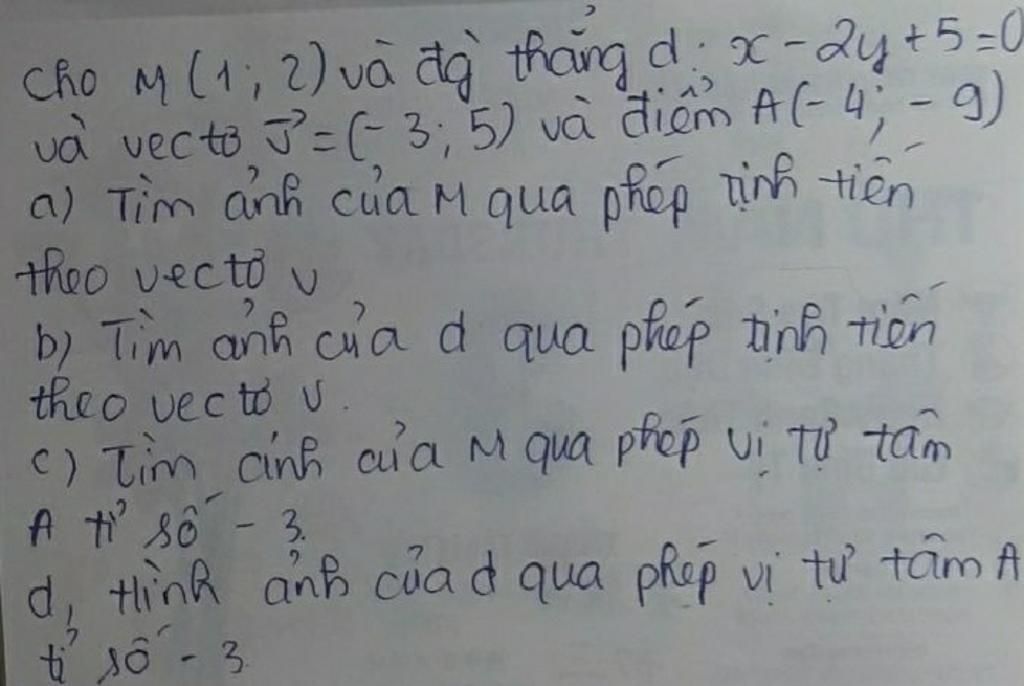 Cho M(1; 2) và đg̀ thẳng d: x - 2y + 5 = 0
và vectơ v⃗ = (- 3; 5) và điểm A(- 4; - 9)
a) Tìm ảnh của M qua phép tịnh tiến
theo vectơ v
b) Tìm ảnh của d qua phép tịnh tiến
theo vectơ v.
c) Tìm ảnh của M qua phép vị tự tâm
A tỉ số - 3.
d, Hình ảnh của d qua phép vị tự tâm A
tỉ số - 3.